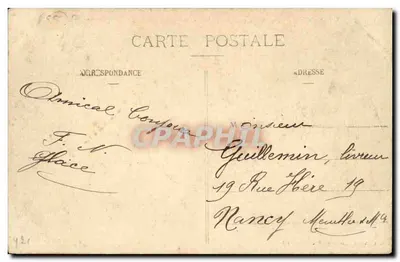 CARTE POSTALE
CORRESPONDANCE
ADRESSE
Amical bonjour
F. N.
Glace
Monsieur
Guillemin, livreur
19 Rue Héré 19
Nancy
CPAPHIL